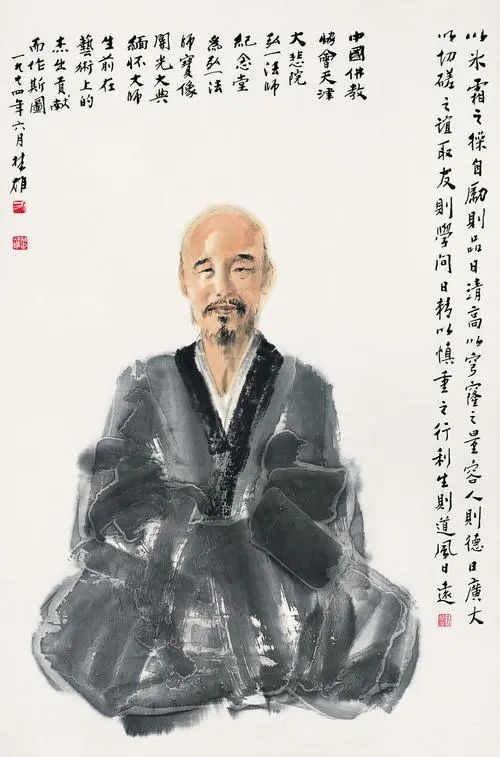 以氷霜之操自勵則品日清高以穹窿之量容人則德日廣大
以切磋之誼取友則學問日精以慎重之行利生則道風日遠
中國佛教
協會天津
大悲院
弘一法師
紀念堂
爲弘一法
師寶像
開光大典
緬懷大師
生前在
藝術上的
杰出貢献
而作斯圖
一九九四年六月 雄